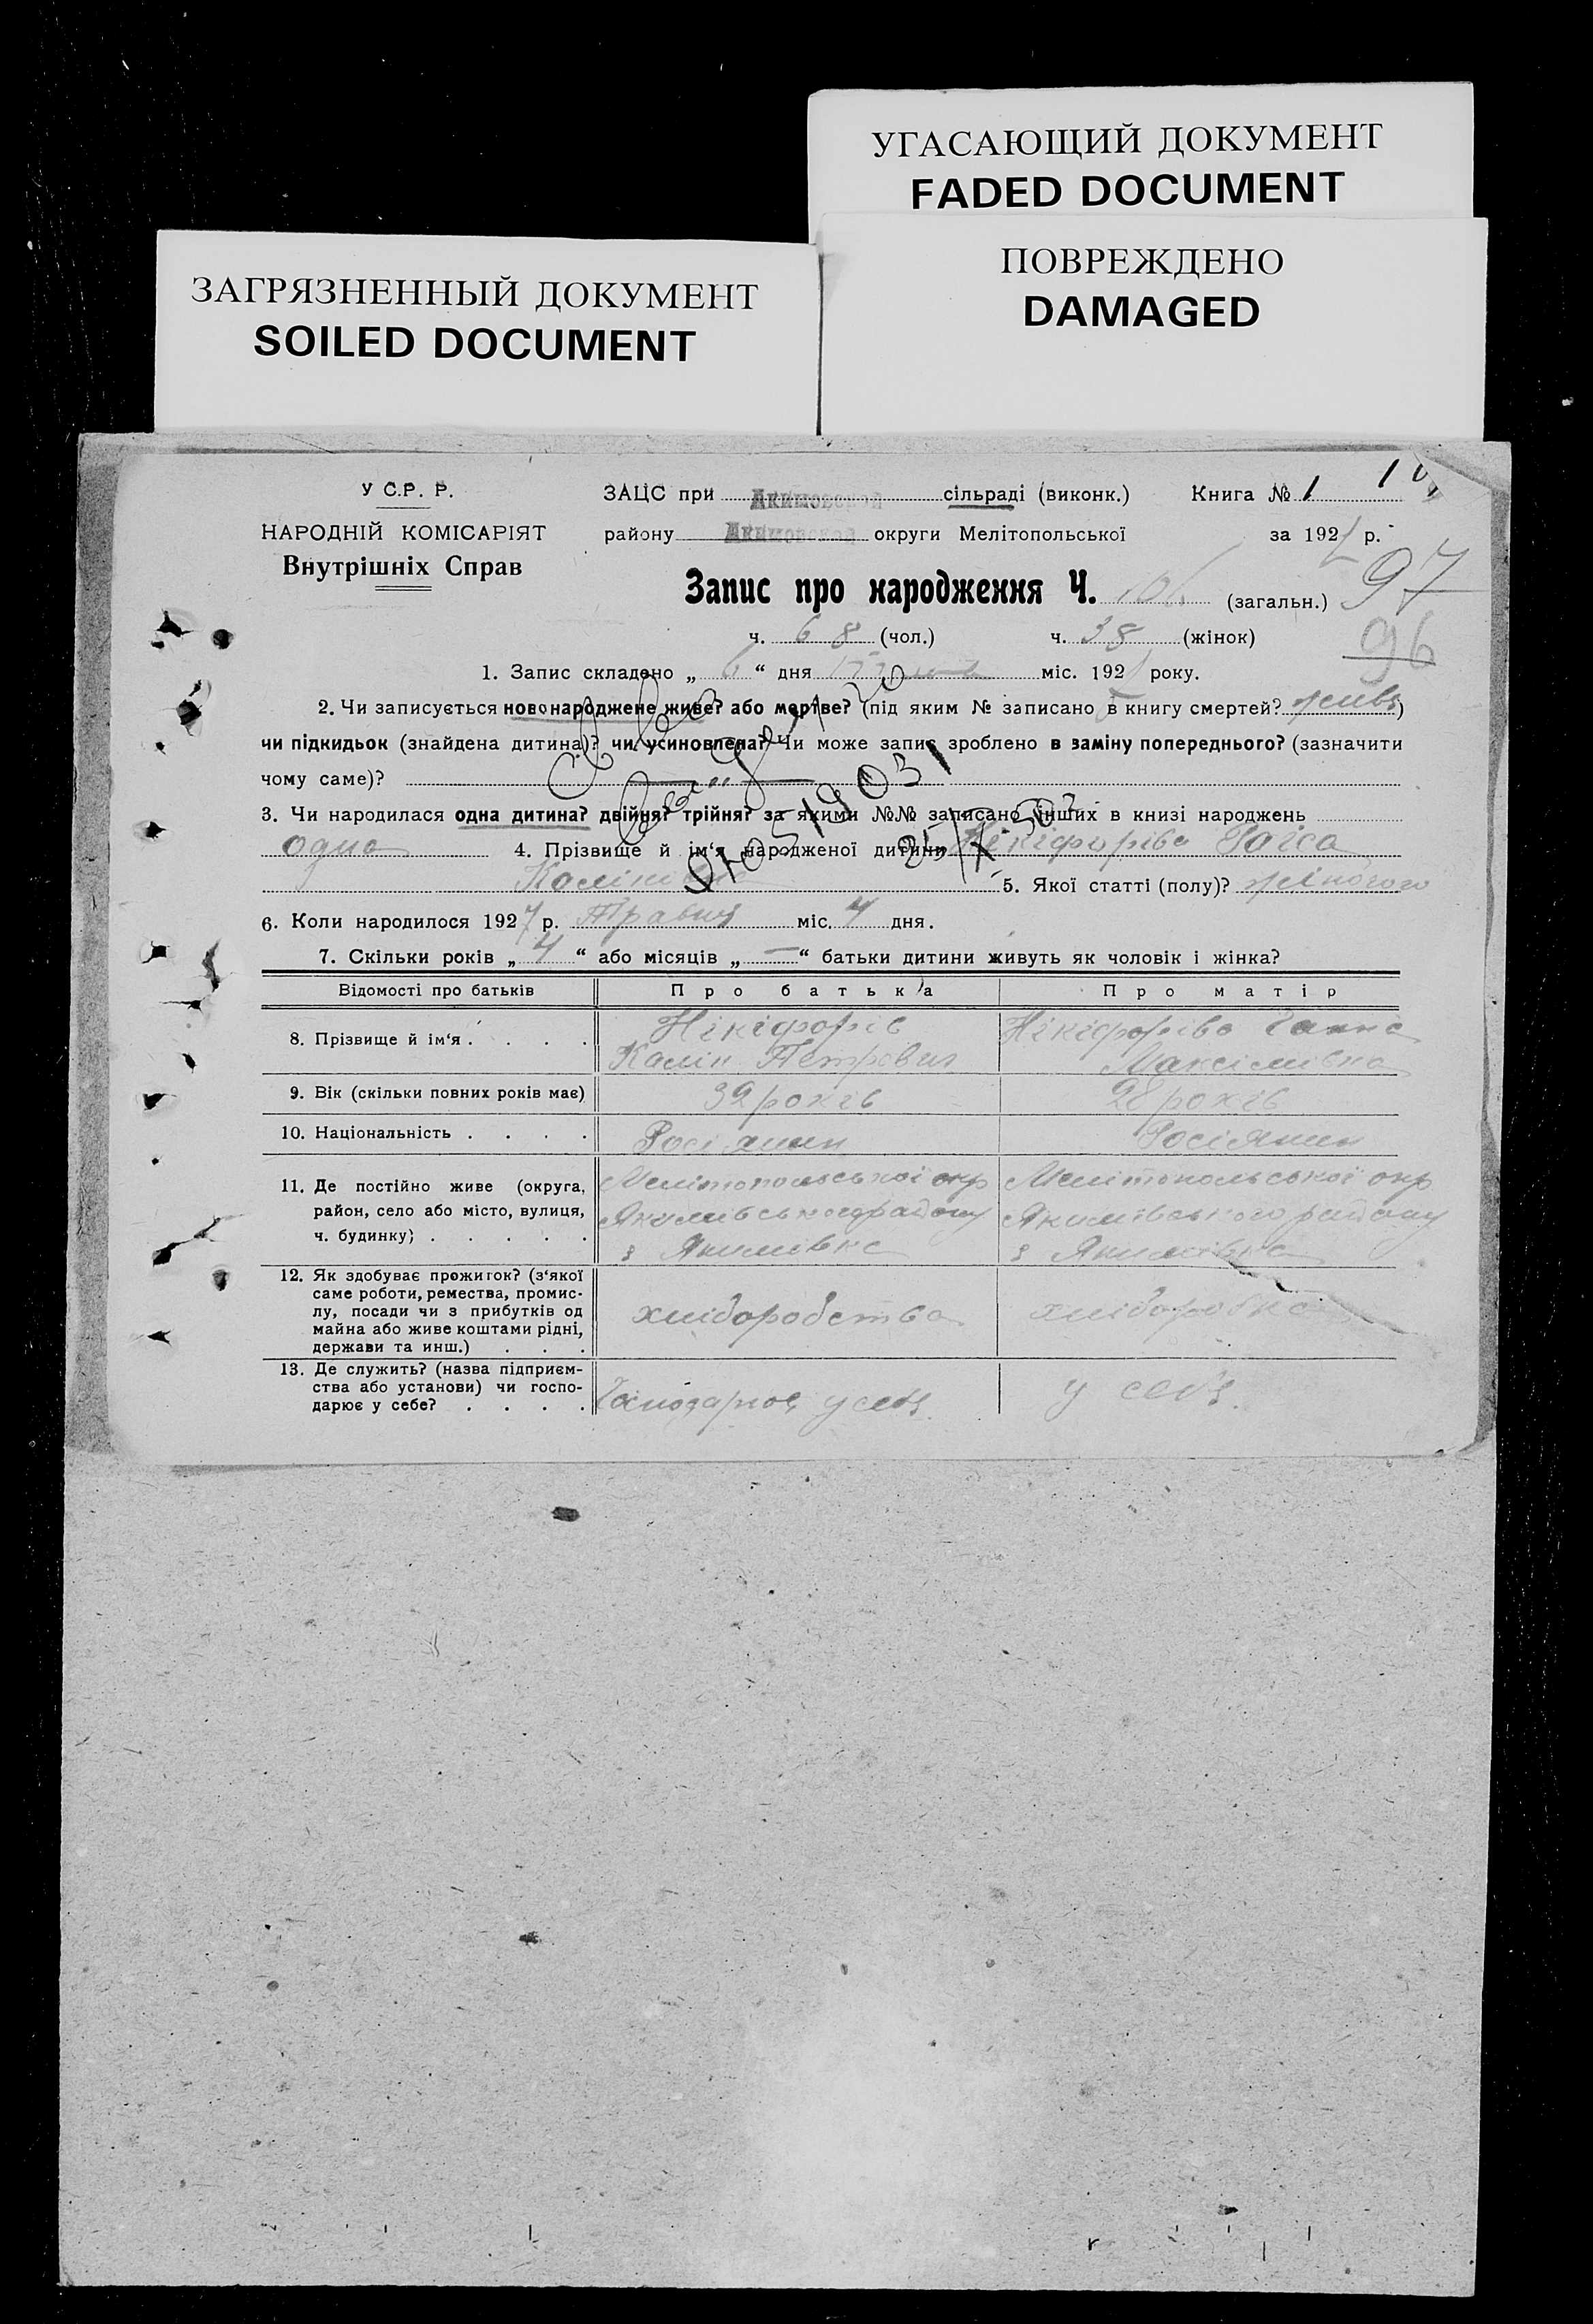 УГАСАЮЩИЙ ДОКУМЕНТ
FADED DOCUMENT
ЗАГРЯЗНЕННЫЙ ДОКУМЕНТ
SOILED DOCUMENT
ПОВРЕЖДЕНО
DAMAGED
У С.Р. Р.
НАРОДНІЙ КОМІСАРІЯТ
Внутрішніх Справ
ЗАЦС при Акимовской сільраді (виконк.) Книга № 1
району Акимовской округи Мелітопольської за 192 р.
97
Запис про народження Ч. (загальн.)
96
ч. 68 (чол.) ч. 38 (жінок)
1. Запис складено „ 6 “ дня міс. 192 року.
2. Чи записується новонароджене живе? або мертве? (під яким № записано в книгу смертей? живе)
чи підкидьок (знайдена дитина)? чи усиновлена? Чи може запис зроблено в заміну попереднього? (зазначити
чому саме)?
3. Чи народилася одна дитина? двійня? трійня? за якими №№ записано інших в книзі народжень
одна 4. Прізвище й ім‘я народженої дитини Нікіфорівa Раіса
5. Якої статті (полу)? жіночого
6. Коли народилося 1927 р. Травня міс. 4 дня.
7. Скільки років „ 4 “ або місяців „ — “ батьки дитини живуть як чоловік і жінка?
Відомості про батьків Про батька Про матір
8. Прізвище й ім‘я . . . . Нікіфорів Нікіфорівa Ганна
Калін Петрович Максімівна
9. Вік (скільки повних років має) 39 років 28 років
10. Національність . . . . Росіянин Росіянин
11. Де постійно живе (округа, Мелітопольської окр Мелітопольської окр
район, село або місто, вулиця, Якимівського району Якимівського району
ч. будинку) . . . . . з Якимівка з Якимівка
12. Як здобуває прожиток? (з‘якої
саме роботи, ремества, промис-
лу, посади чи з прибутків од хліборобства
майна або живе коштами рідні,
держави та инш.) . . .
13. Де служить? (назва підприєм-
ства або установи) чи госпо- у себя
дарює у себе? . . . . Господарює у себя